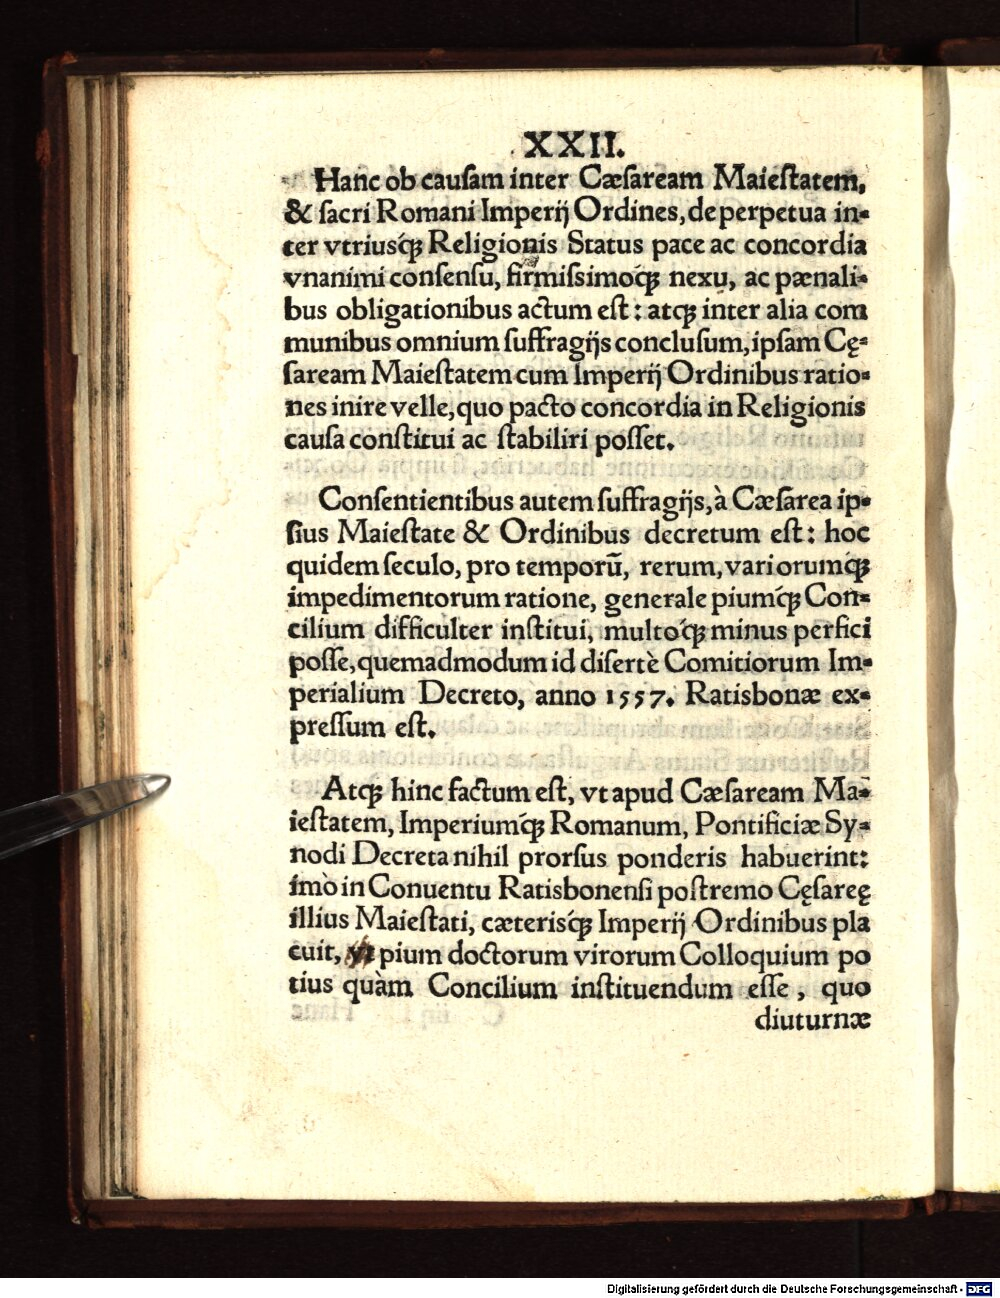 XXII.
Hanc ob cauſam inter Cæſaream Maieſtatem,
& ſacri Romani Imperij Ordines, de perpetua in-
ter vtriusq́ꝫ Religionis Status pace ac concordia
vnanimi conſenſu, firmiſsimoq́ꝫ nexu, ac pænali-
bus obligationibus actum eſt: atqꝫ inter alia com
munibus omnium ſuffragijs concluſum, ipſam Cę-
ſaream Maieſtatem cum Imperij Ordinibus ratio-
nes inire velle, quo pacto concordia in Religionis
cauſa conſtitui ac ſtabiliri poſſet.
Conſentientibus autem ſuffragijs, à Cæſarea ip-
ſius Maieſtate & Ordinibus decretum eſt: hoc
quidem ſeculo, pro temporū, rerum, variorumq́ꝫ
impedimentorum ratione, generale piumq́ꝫ Con-
cilium difficulter inſtitui, multoq́ꝫ minus perfici
poſſe, quemadmodum id diſertè Comitiorum Im-
perialium Decreto, anno 1557. Ratisbonæ ex-
preſſum eſt.
Atqꝫ hinc factum eſt, vt apud Cæſaream Ma-
ieſtatem, Imperiumq́ꝫ Romanum, Pontificiæ Sy-
nodi Decreta nihil prorſus ponderis habuerint:
imò in Conuentu Ratisbonenſi poſtremo Cęſareę
illius Maieſtati, cæterisq́ꝫ Imperij Ordinibus pla
cuit, vt pium doctorum virorum Colloquium po
tius quàm Concilium inſtituendum eſſe, quo
diuturnæ
Digitalisierung gefördert durch die Deutsche Forschungsgemeinschaft - DFG